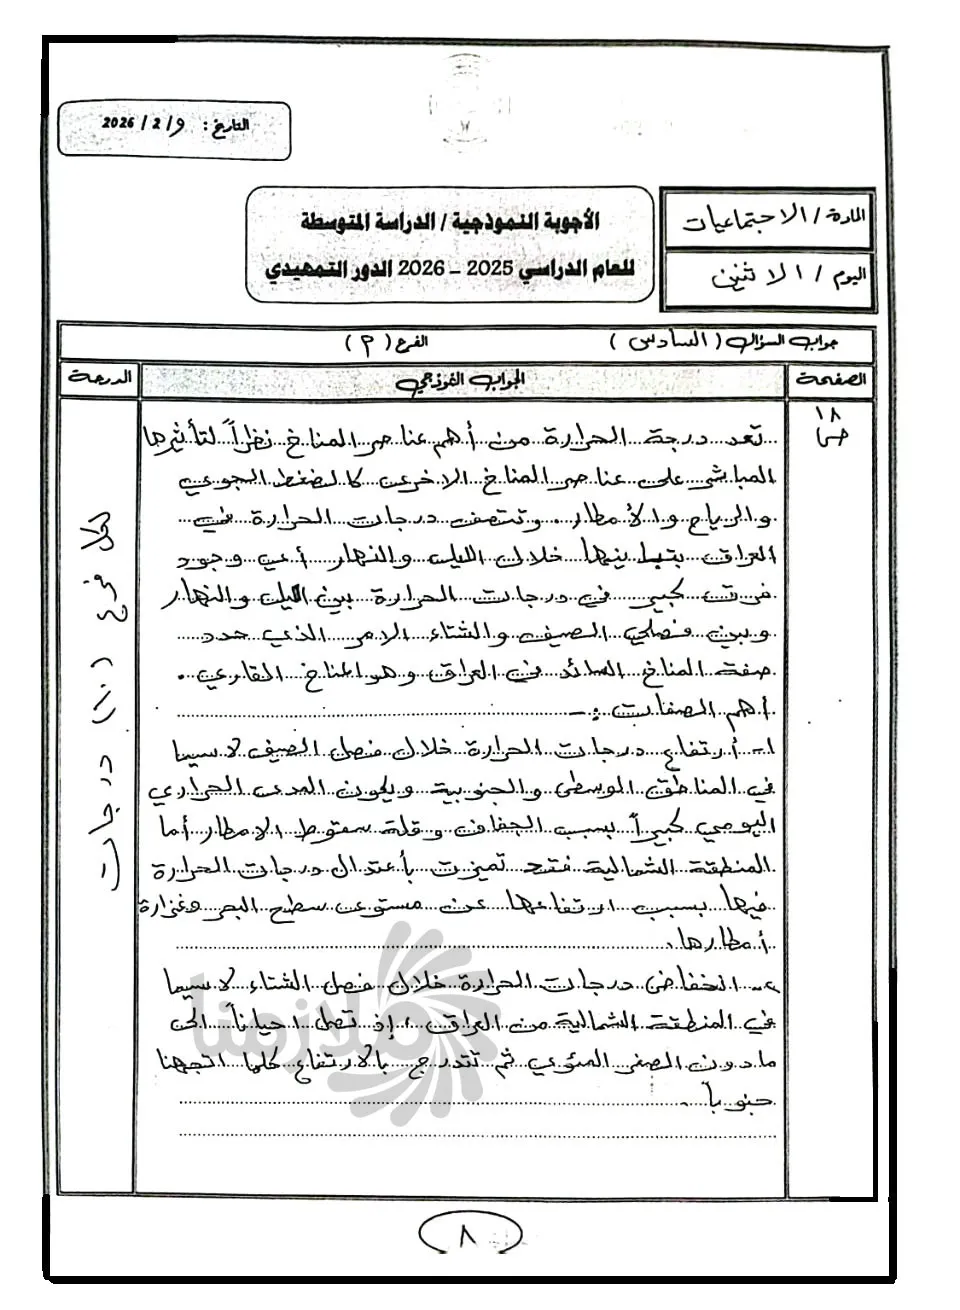 التاريخ : 9 / 2 / 2026
المادة / الاجتماعيات
اليوم / الاثنين
الأجوبة النموذجية / الدراسة المتوسطة
للعام الدراسي 2025 - 2026 الدور التمهيدي
جواب السؤال ( السادس ) الفرع ( م )
الصفحة الجواب النموذجي الدرجة
١٨
ص
تعد درجة الحرارة من أهم عناصر المناخ نظراً لتأثيرها
المباشر على عناصر المناخ الاخرى كالضغط الجوي
والرياح والأمطار. وتتصف درجات الحرارة في
العراق بتباينها خلال الليل والنهار أي وجود
فرق كبير في درجات الحرارة بين الليل والنهار
وبين فصلي الصيف والشتاء الامر الذي حدد
صفة المناخ السائد في العراق وهو المناخ القاري .
أهم الصفات :-
١- أرتفاع درجات الحرارة خلال فصل الصيف لاسيما
في المناطق الوسطى والجنوبية ويكون المدى الحراري
اليومي كبيراً بسبب الجفاف وقلة سقوط الامطار أما
المنطقة الشمالية فقد تميزت بأعتدال درجات الحرارة
فيها بسبب ارتفاعها عن مستوى سطح البحر وغزارة
أمطارها.
٢- انخفاض درجات الحرارة خلال فصل الشتاء لاسيما
في المنطقة الشمالية من العراق ، إذ تصل احياناً الى
مادون الصفر المئوي ثم تتدرج بالارتفاع كلما اتجهنا
جنوباً .
لكل فرع (١٠) درجات
ملازمنا
٨